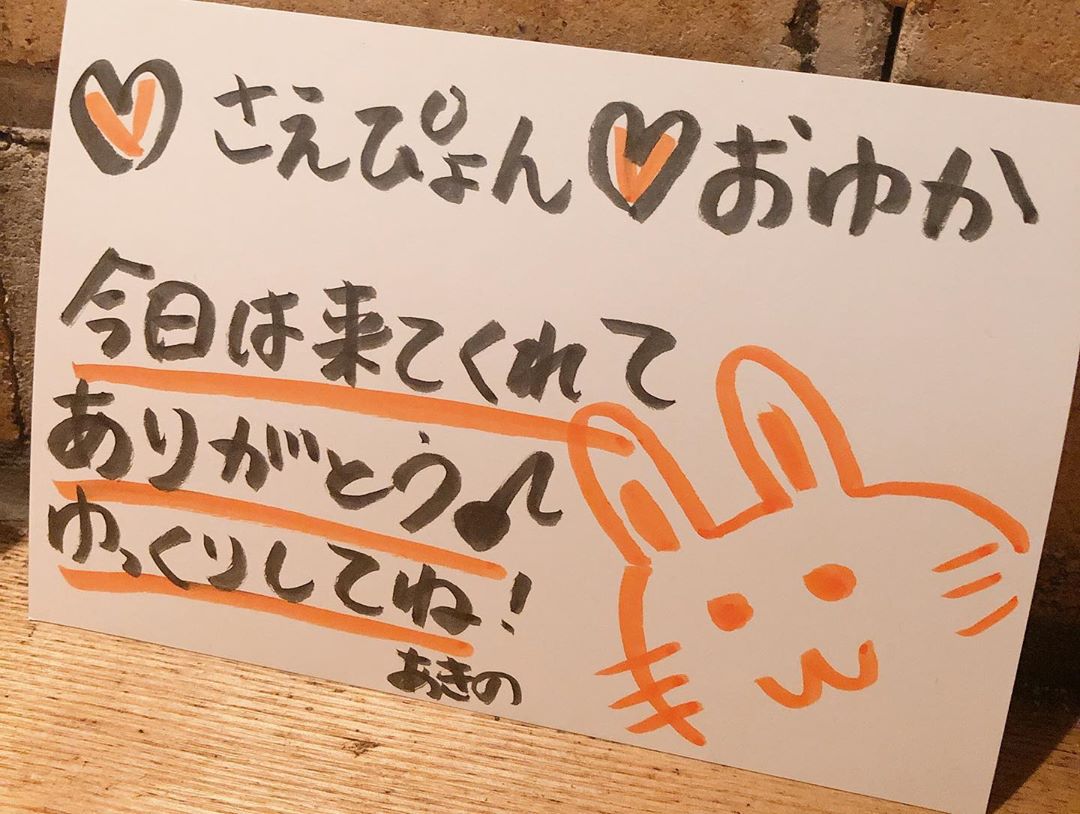 ♡さえぴょん♡おゆか
今日は来てくれて
ありがとう♪
ゆっくりしてね!
あきの